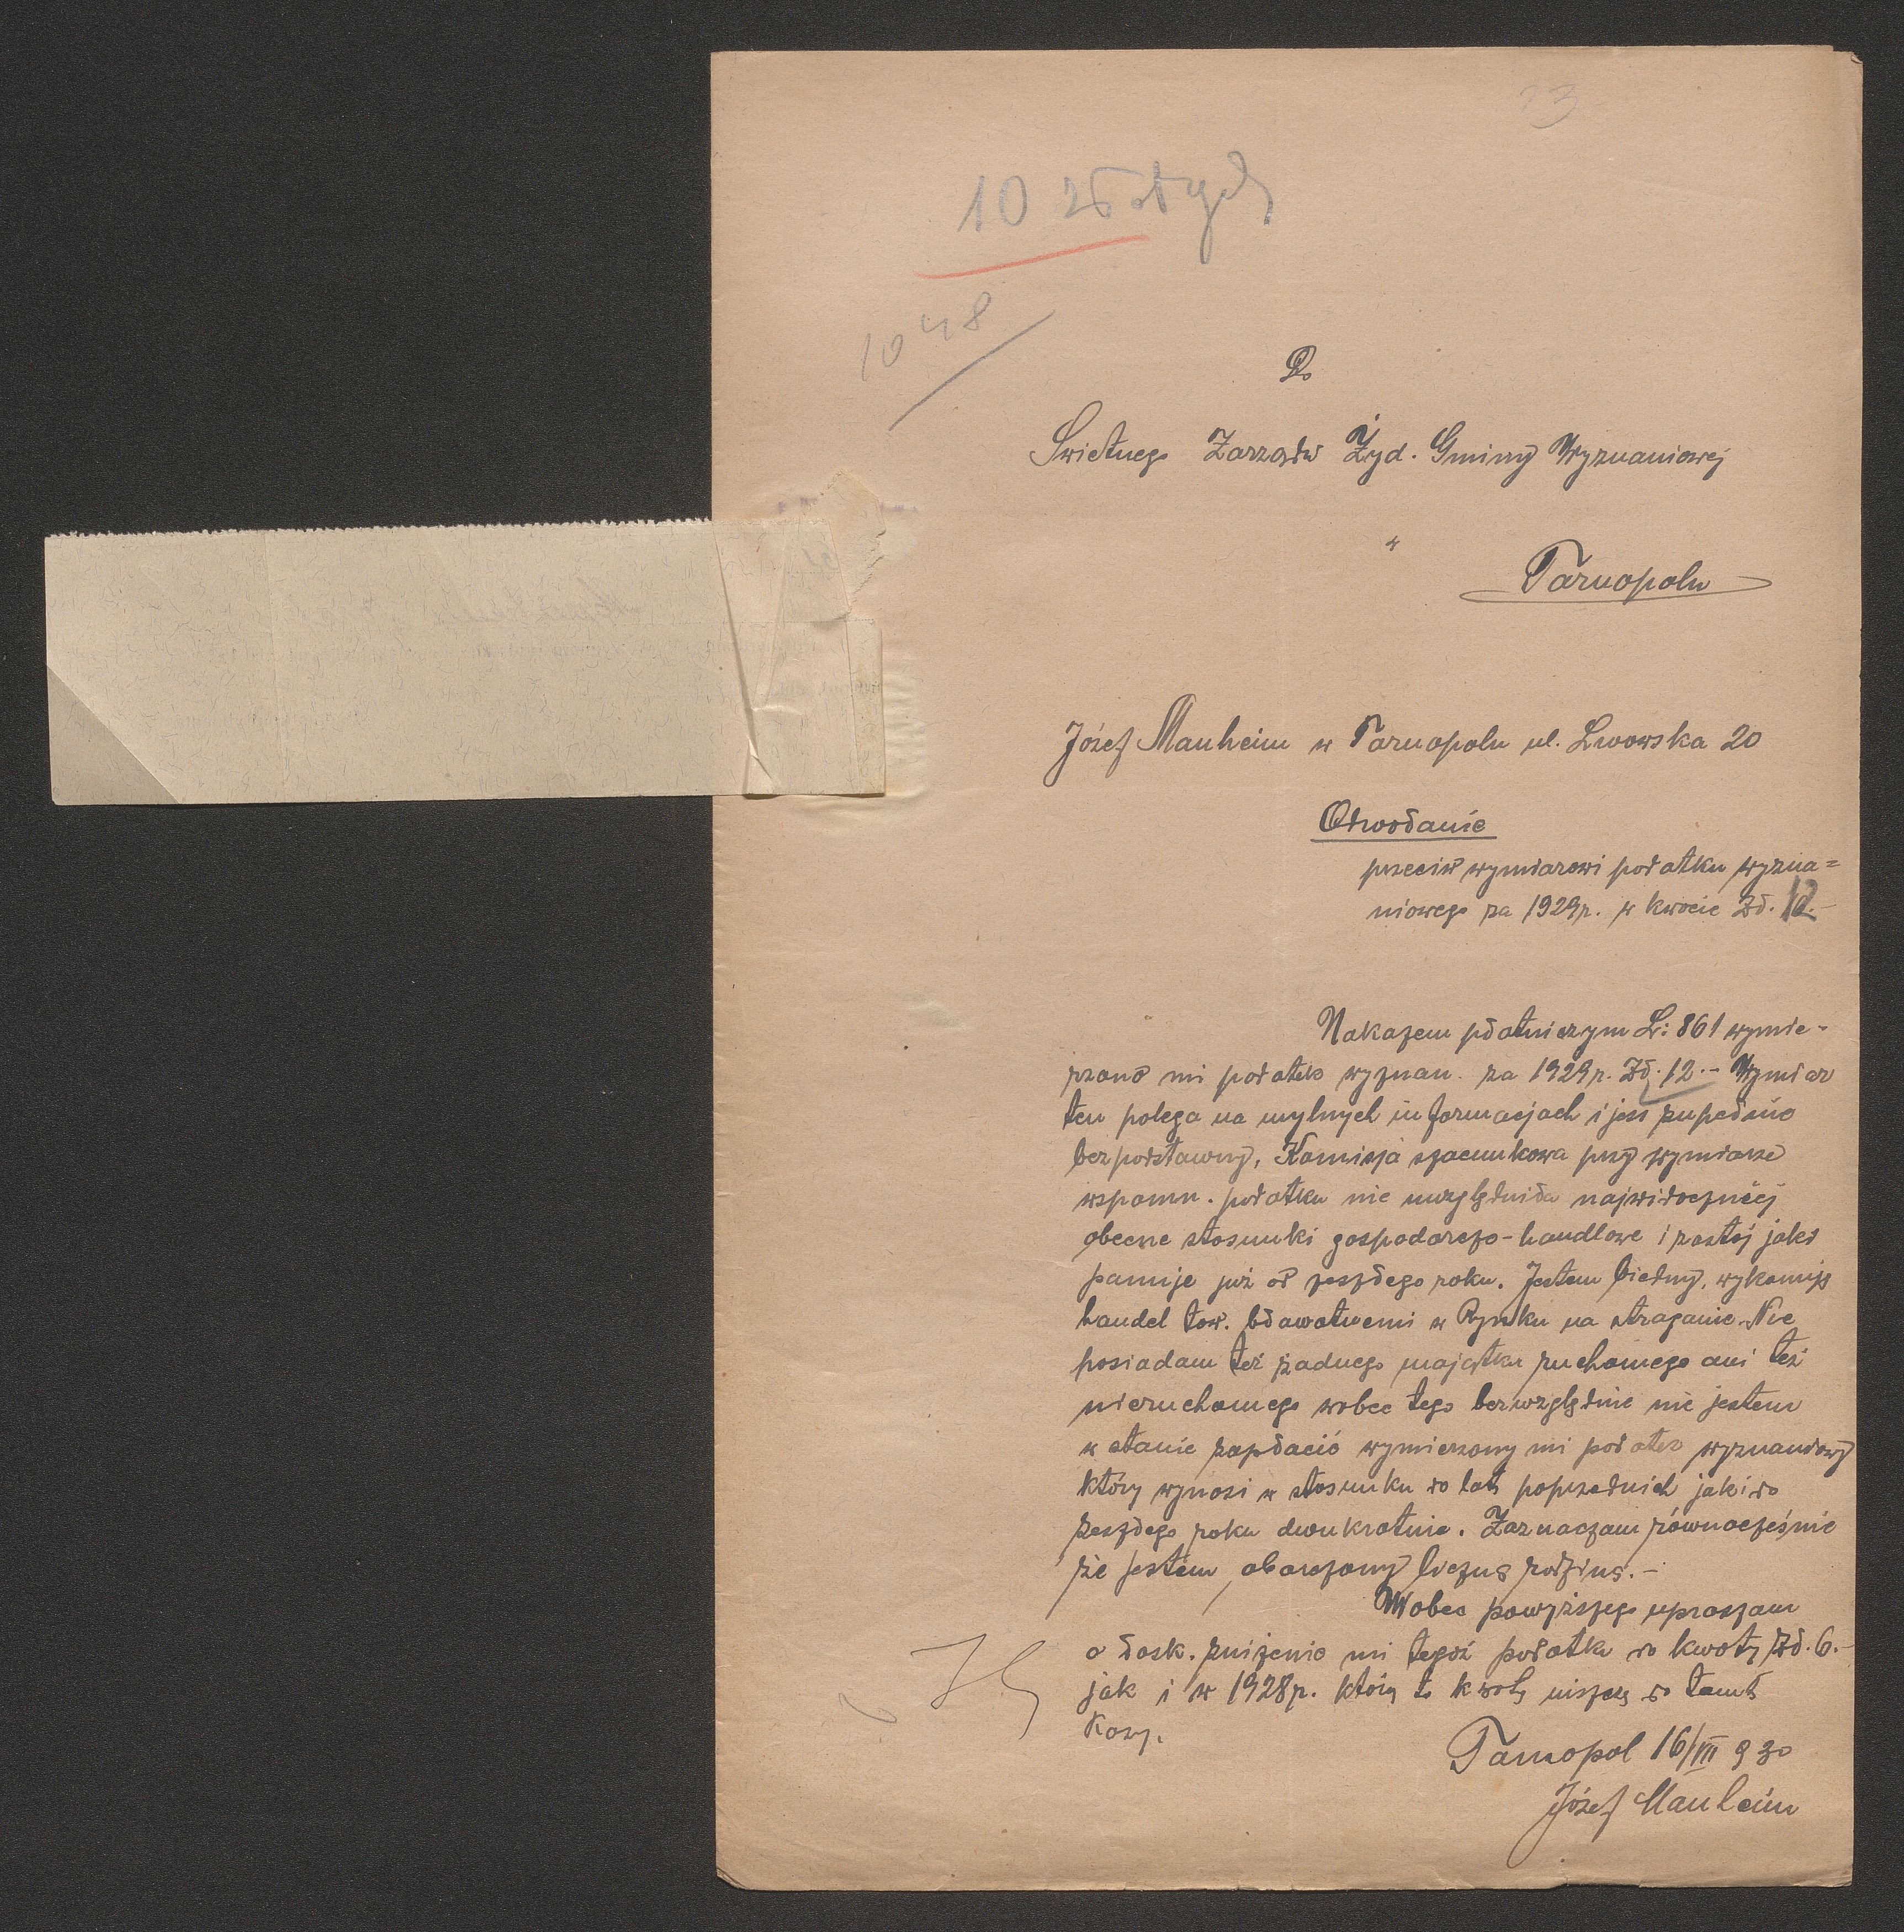 23
10 złotych
1048
Do
Swietnego Zarządu Żyd. Gminy Wyznaniowej
w
Tarnopolu
Józef Manheim w Tarnopolu ul. Lwowska 20
Odwołanie
przeciw wymiarowi podatku wyzna=
niowego za 1929 r. w kwocie Zł. 12.-
Nakazem płatniczym L: 861 wymie-
rzono mi podatek wyznan. za 1929 r. Zł. 12.- Wymiar
ten polega na mylnych informacjach i jest zupełnie
bezpodstawny, Komisja szacunkowa przy wymiarze
wspomn. podatku nie uwzględniła najwidoczniej
obecne stosunki gospodarczo-handlowe i zastój jaki
panuje już od zeszłego roku. Jestem biedny, wykonuję
handel tow. bławatnemi w Rynku na straganie. Nie
posiadam też żadnego majątku ruchomego ani też
nieruchomego wobec tego bezwzględnie nie jestem
w stanie zapłacić wymierzony mi podatek wyznaniowy
który wynosi w stosunku do lat poprzednich jak i do
zeszłego roku dwukrotnie. Zaznaczam równocześnie
że jestem obarczony liczną rodziną.-
Wobec powyższego upraszam
o łask. zniżenie mi tegoż podatku do kwoty Zł. 6.-
jak i w 1928 r. którą to kwotę uiszczę do tamt.
Kasy.
Tarnopol 16/VII 930
Józef Manheim